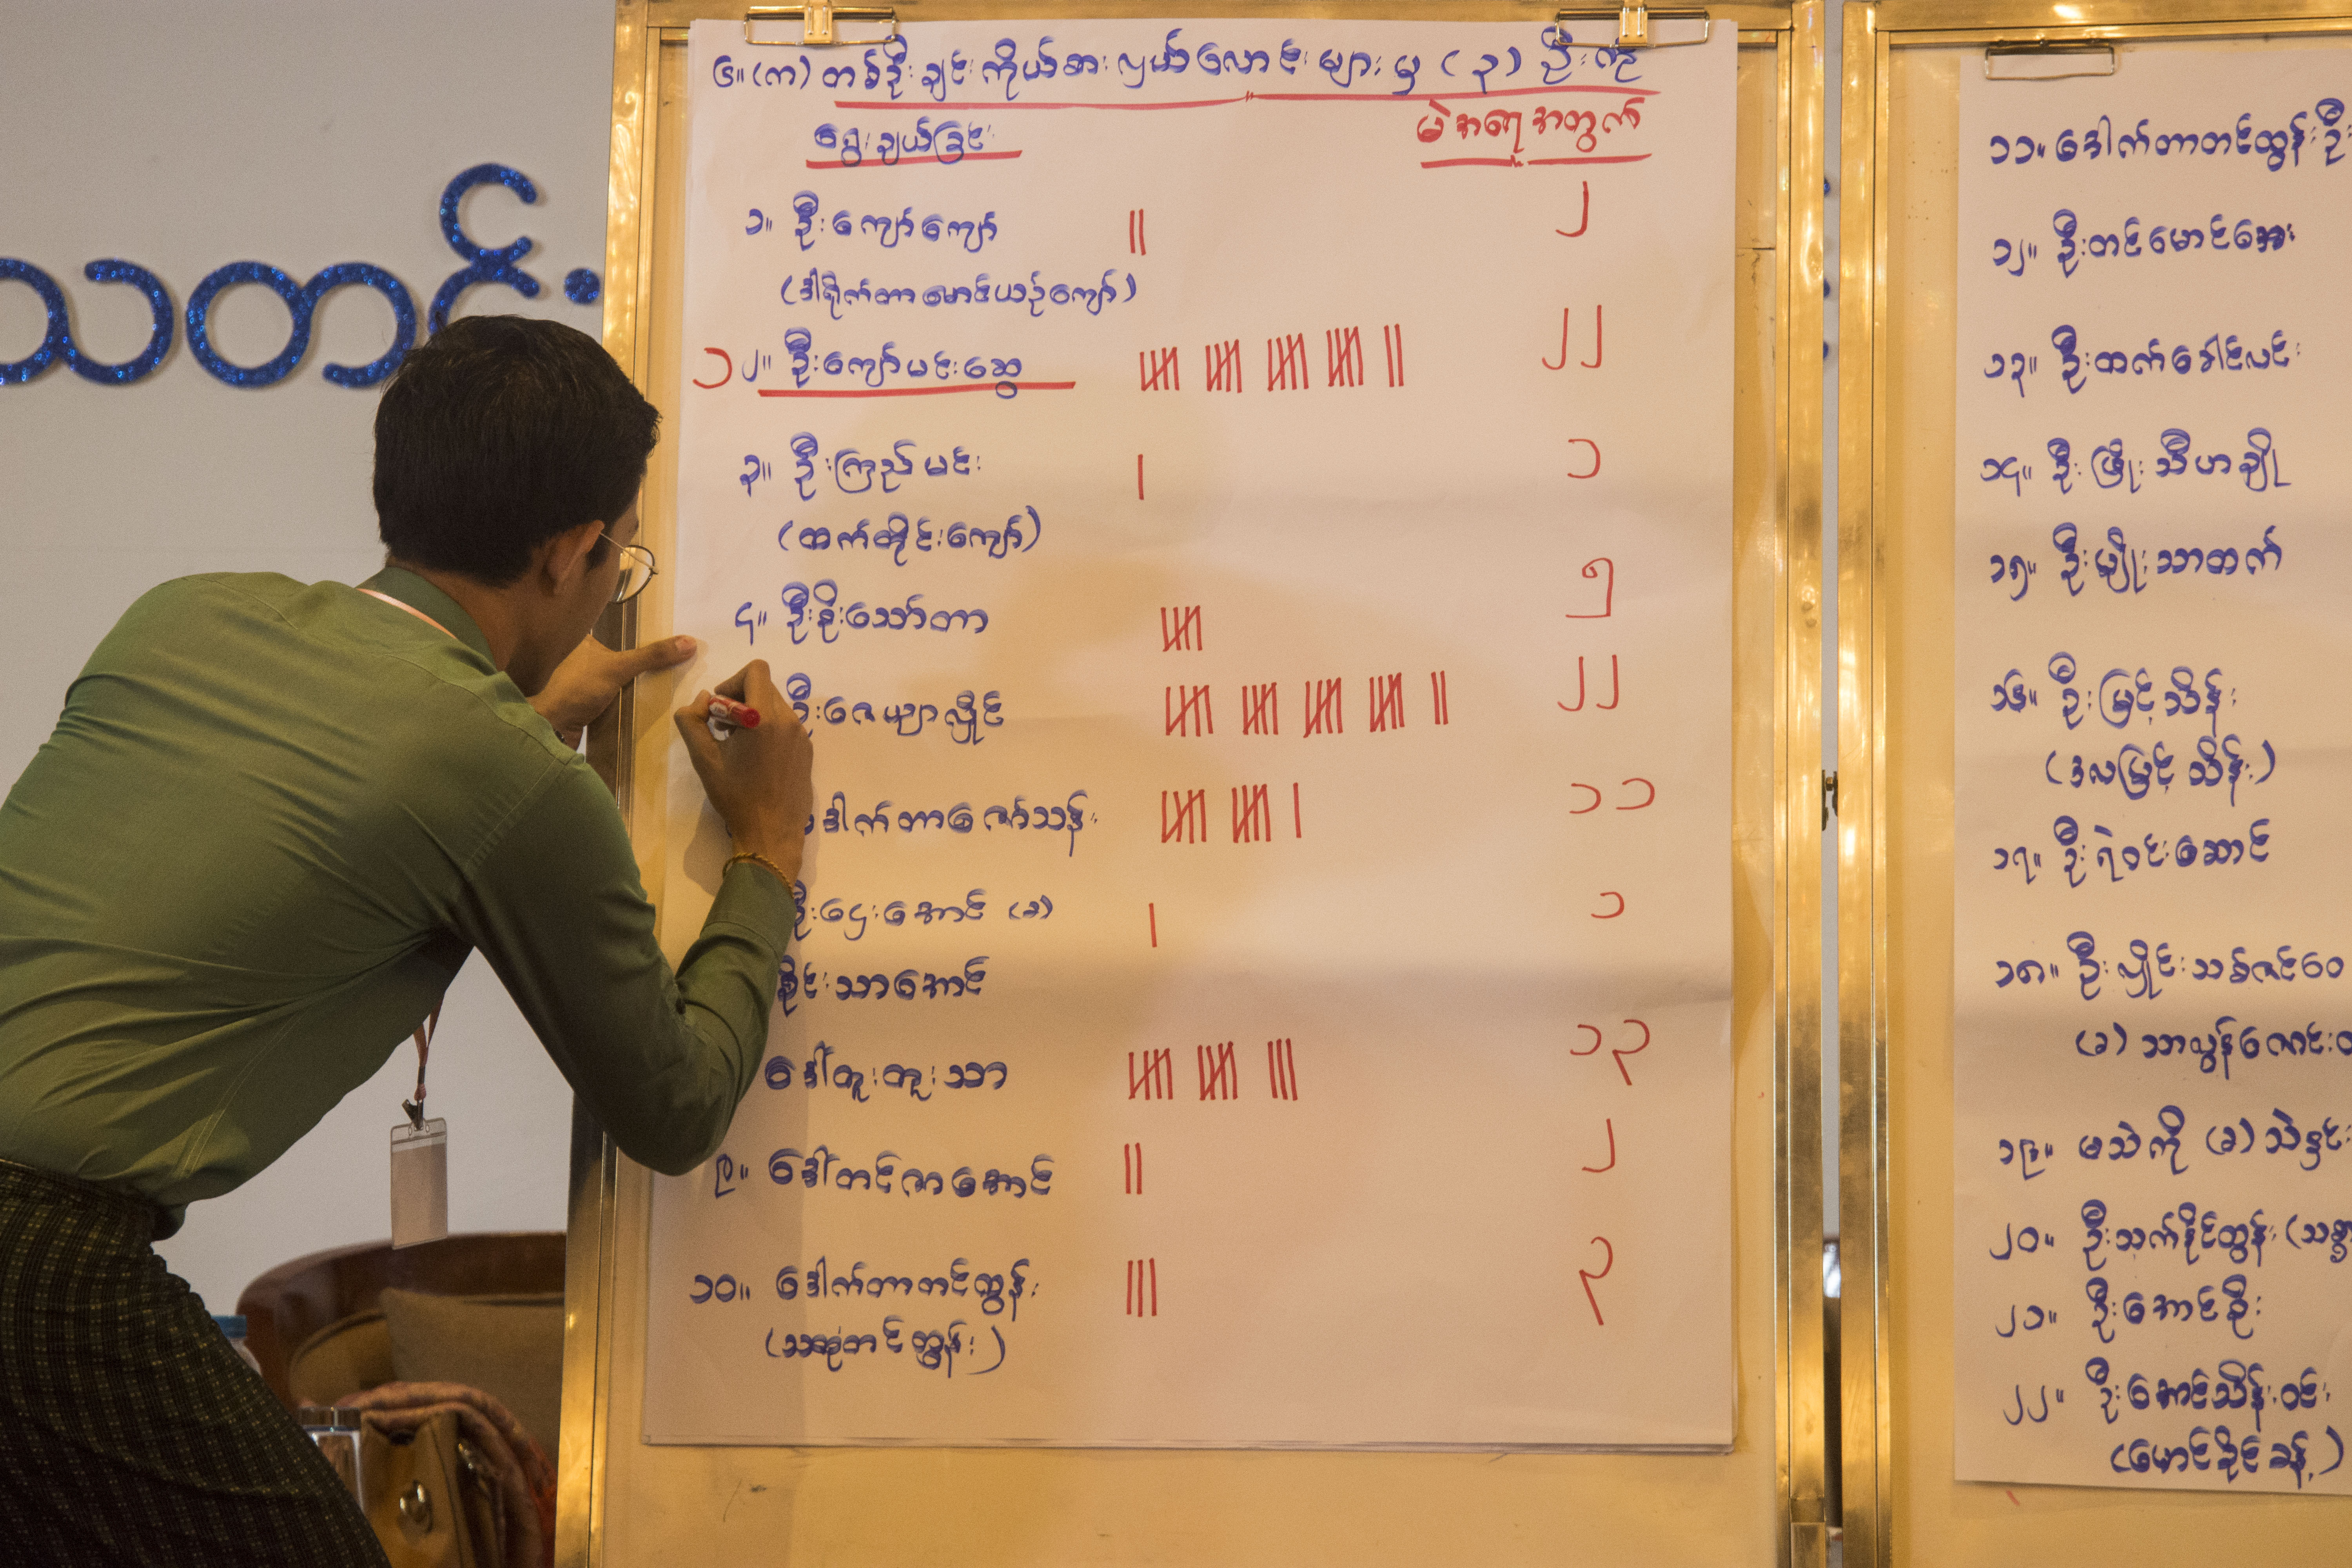 သတင်း
၆။ (က) တစ်ဦးချင်းကိုယ်စားလှယ်လောင်းများမှ (၃) ဦးကို
ရွေးချယ်ခြင်း
မဲအရေအတွက်
၁။ ဦးကျော်ကျော် ၂
(ဒါရိုက်တာမောင်ယဉ်ကျော်)
၁ ၂။ ဦးကျော်မင်းဆွေ ၂၂
၃။ ဦးကြည်မင်း ၁
(ထက်ထိုင်းကျော်)
၄။ ဦးစိုးသော်တာ ၅
ဦးဇေယျာလှိုင် ၂၂
ဒေါက်တာဇော်သန်း ၁၁
ဦးဌေးအောင် (ခ) ၁
စိုင်းသာအောင်
ဒေါ်ထူးထူးသာ ၁၃
၉။ ဒေါ်တင်ဇာအောင် ၂
၁၀။ ဒေါက်တာတင်ထွန်း ၃
(သထုံတင်ထွန်း)
၁၁။ ဒေါက်တာတင်ထွန်းဦး
၁၂။ ဦးတင်မောင်အေး
၁၃။ ဦးထက်ခေါင်လင်း
၁၄။ ဦးဖြိုးသီဟချို
၁၅။ ဦးမျိုးသာထက်
၁၆။ ဦးမြင့်သိန်း
(ဒလမြင့်သိန်း)
၁၇။ ဦးရဲဝင်းဆောင်
၁၈။ ဦးလှိုင်းသစ်ဇင်ဝေ
(ခ)
၁၉။ မသဲကို (ခ)
၂၀။ ဦးသက်နိုင်ထွန်း
၂၁။ ဦးအောင်စိုး
၂၂။ ဦးအောင်သိန်းဝင်း
(မောင်ခိုင်ခန့်)